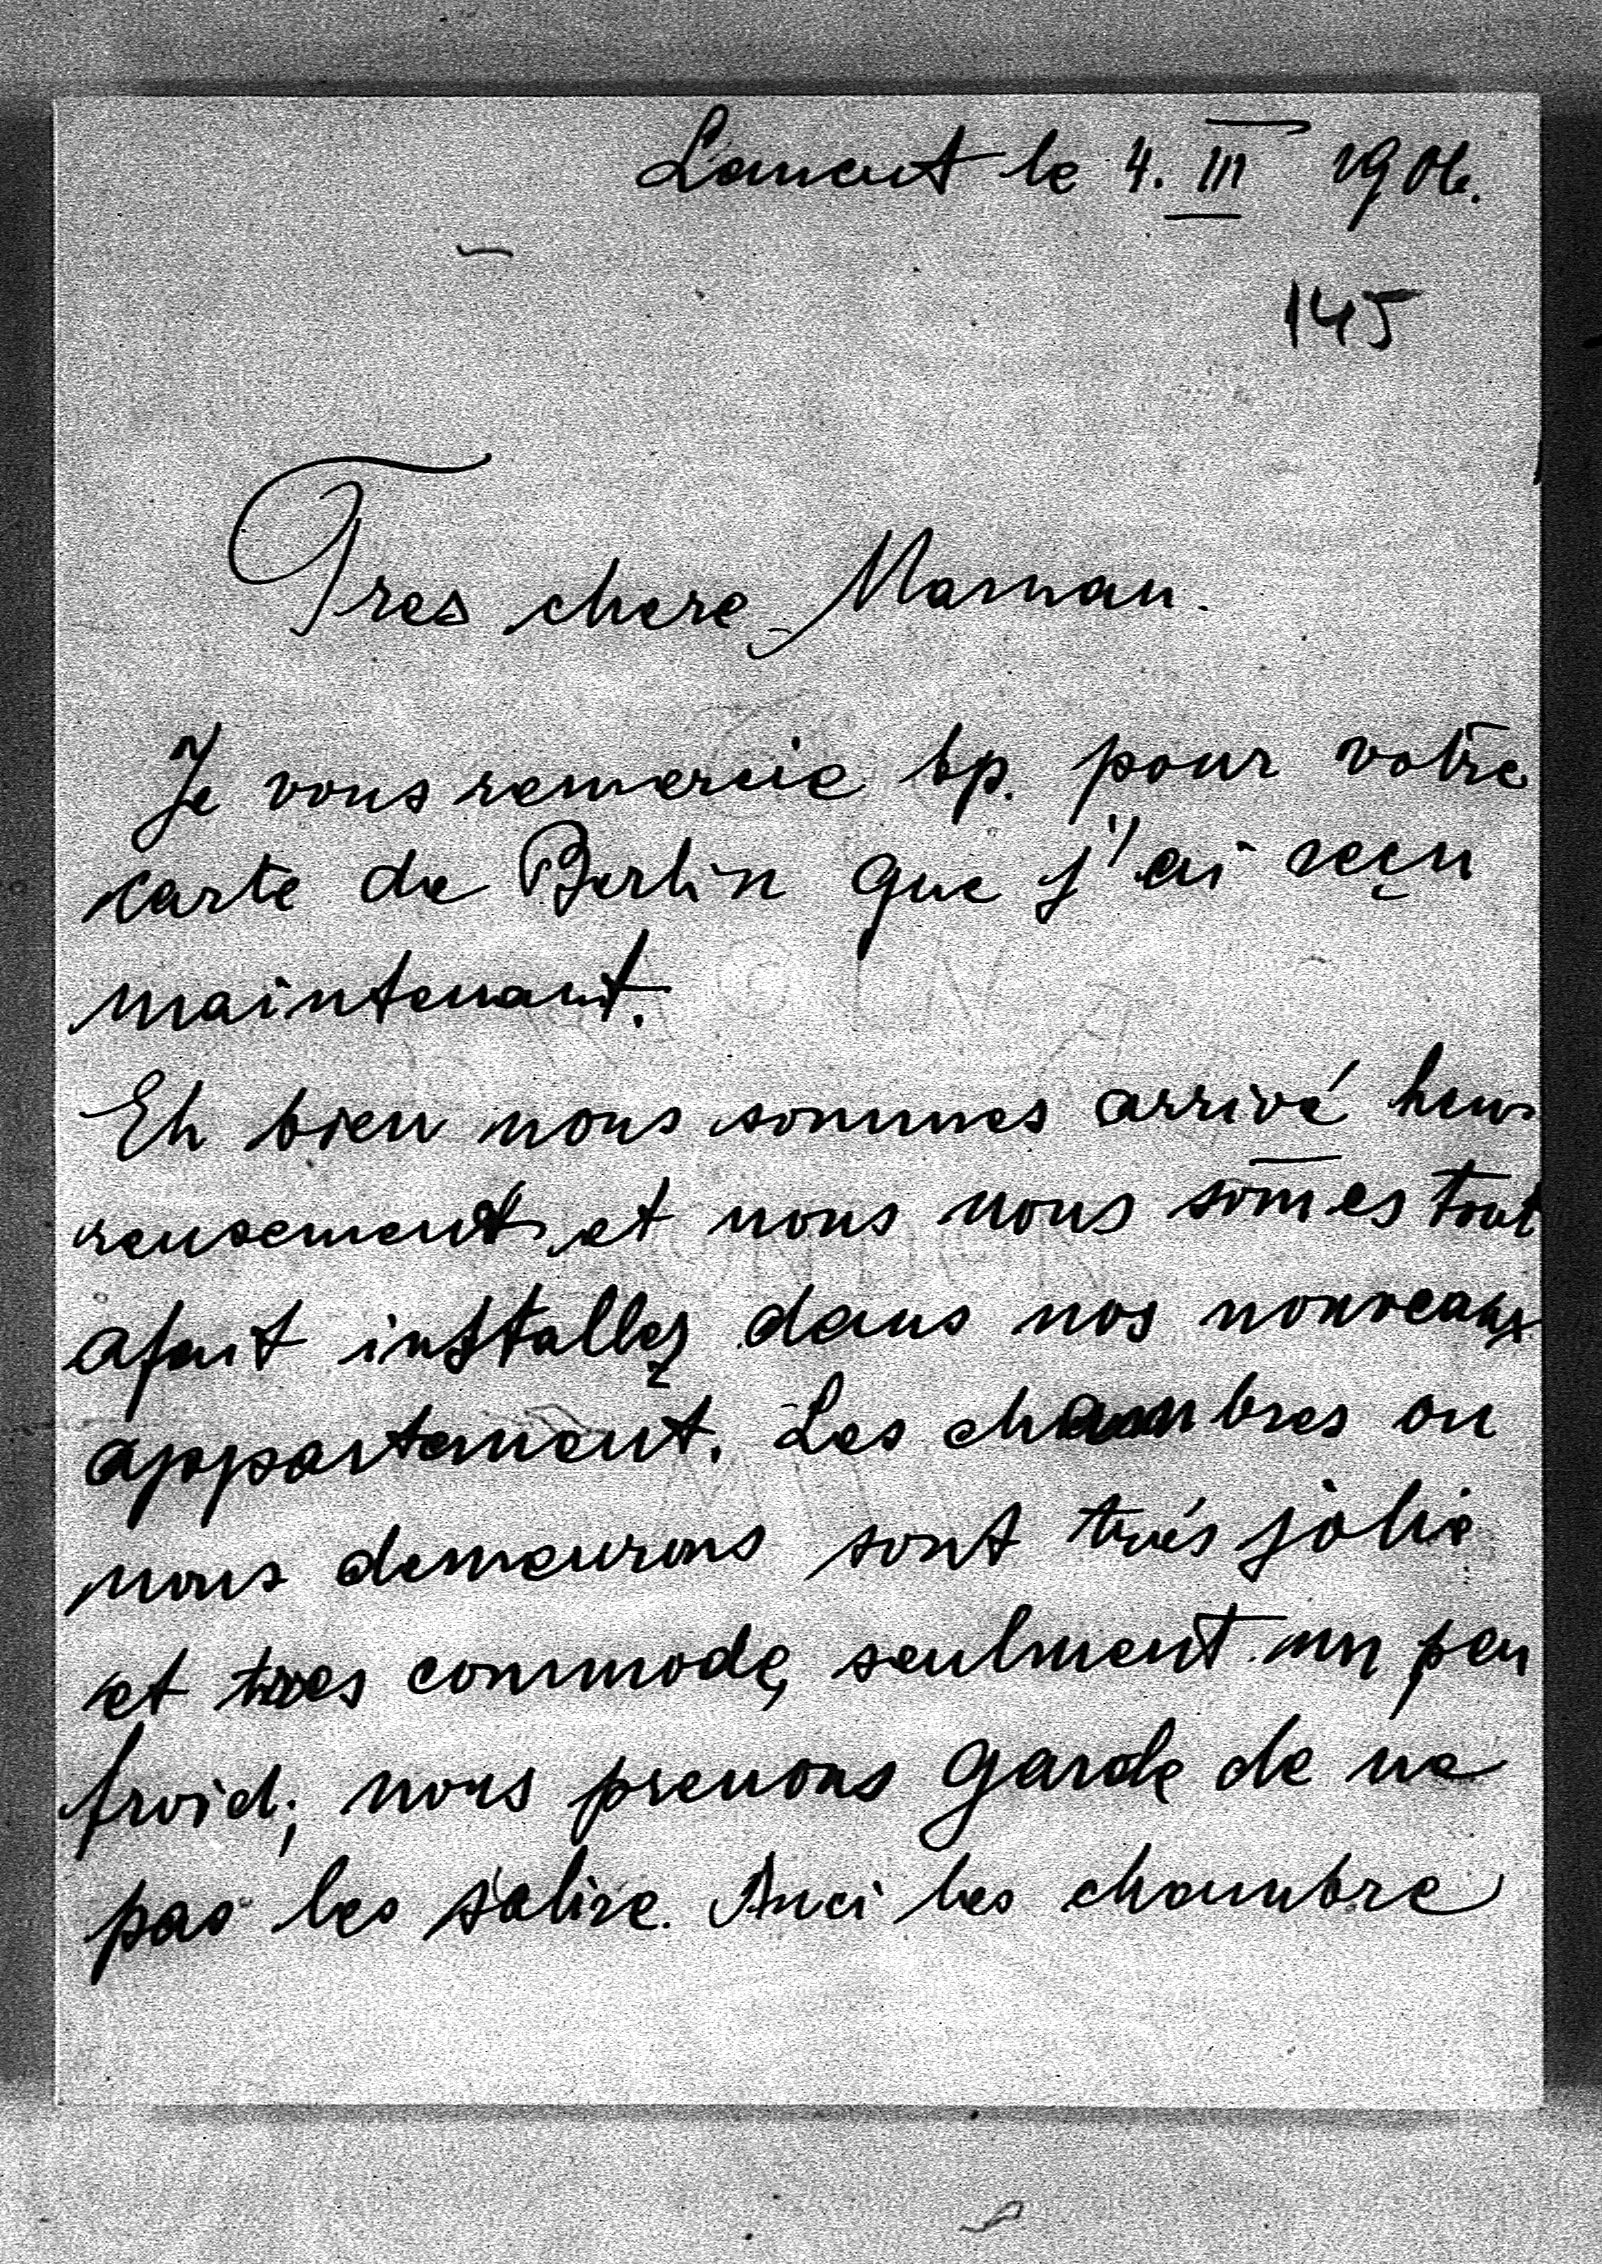 Lancut le 4. III 1906.
145
Tres chere Maman.
Je vous remercie bp. pour votre
carte de Berlin que j'ai reçu
maintenant.
Eh bien nous sommes arrivé heu-
reusement et nous nous somes tout
afait installez dans nos nouveaux
appartement. Les chambres ou
nous demeurons sont trés jolie
et tres commode, seulment un peu
froid; nous prenons garde de ne
pas les salire. Auci les chambre